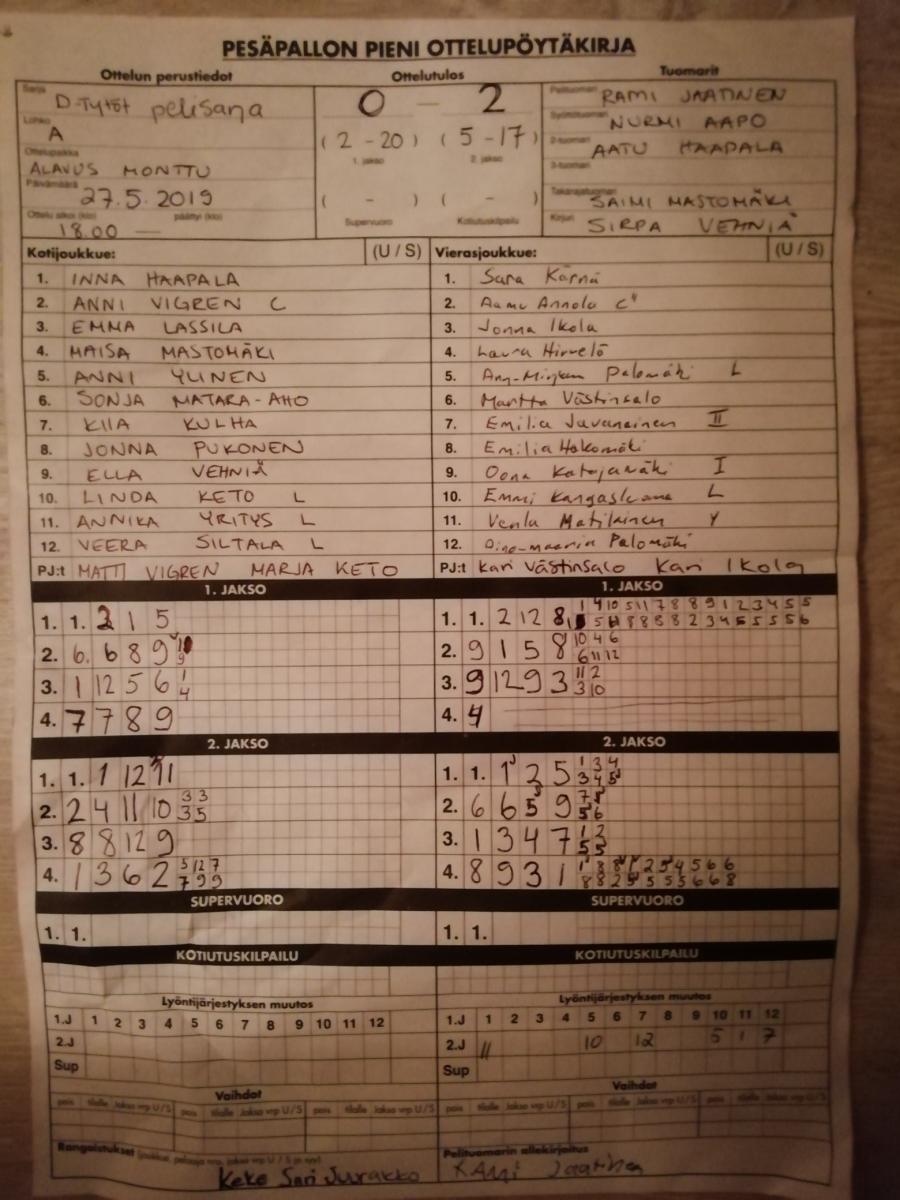 PESÄPALLON PIENI OTTELUPÖYTÄKIRJA
Ottelun perustiedot Ottelutulos Tuomarit
Sarja D-Tytöt pelisarja 0 - 2 Pelituomari RAMI JAATINEN
Lohko A Syöttötuomari NURMI AAPO
(2 - 20) (5 - 17) 2-tuomari AATU HAAPALA
Ottelupaikka 1. jakso 2. jakso 3-tuomari
ALAVUS MONTTU
Päivämäärä 27.5.2019 ( - ) ( - ) Takarajatuomari SAIMI MASTOMÄKI
Ottelu alkoi (klo) päättyi (klo) Supervuoro Kotiutuskilpailu Kirjuri SIRPA VEHNIÄ
18.00 —
Kotijoukkue: (U / S) Vierasjoukkue: (U / S)
1. INNA HAAPALA 1. Sara Kärnä
2. ANNI VIGREN C 2. Aamu Annola C
3. EMMA LASSILA 3. Jonna Ikola
4. MAISA MASTOMÄKI 4. Laura Hirvelä
5. ANNI YLINEN 5. Palomäki L
6. SONJA MATARA-AHO 6. Martta Västinsalo
7. KIIA KULHA 7. Emilia Javanainen II
8. JONNA PUKONEN 8. Emilia Hakomäki
9. ELLA VEHNIÄ 9. Oona Katajamäki I
10. LINDA KETO L 10. Emmi Kangasluoma L
11. ANNIKA YRITYS L 11. Venla Matilainen Y
12. VEERA SILTALA L 12. Palomäki
PJ:t MATTI VIGREN MARJA KETO PJ:t Kari Västinsalo Kari Ikola
1. JAKSO 1. JAKSO
1. 1. 2 1 5 1. 1. 2 12 8
2. 6. 6 8 9 2. 9 1 5 8 10 4 6 6 11 12
3. 1 12 5 6 1 4 3. 9 12 9 3 11 2 3 10
4. 7 7 8 9 4. 4
2. JAKSO 2. JAKSO
1. 1. 1 12 11 1. 1. 1 2 5 1 3 4 3 4 5
2. 2 4 11 10 3 3 3 5 2. 6 6 5 9
3. 8 8 12 9 3. 1 3 4 7 1 2 5 5
4. 1 3 6 2 5 12 7 7 9 9 4. 8 9 3 1
SUPERVUORO SUPERVUORO
1. 1. 1. 1.
KOTIUTUSKILPAILU KOTIUTUSKILPAILU
Lyöntijärjestyksen muutos Lyöntijärjestyksen muutos
1.J 1 2 3 4 5 6 7 8 9 10 11 12 1.J 1 2 3 4 5 6 7 8 9 10 11 12
2.J 2.J 11 10 12 5 1 7
Sup Sup
Vaihdot Vaihdot
pois tilalle Jakso vrp U/S pois tilalle Jakso vrp U/S pois tilalle Jakso vrp U/S pois tilalle Jakso vrp U/S
Rangaistukset Pelituomarin allekirjoitus
Keke Sari Juurakko RAmi Jaatinen